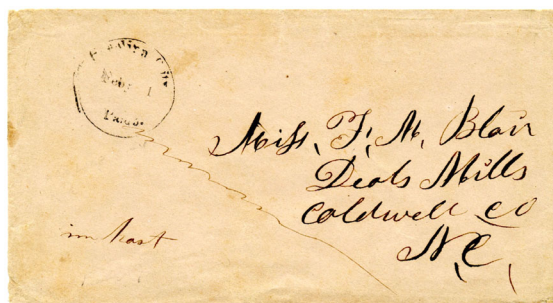 Febr 1
Paid
Miss, F, M, Blair
Deals Mills
Coldwell co
N, C,
in hast